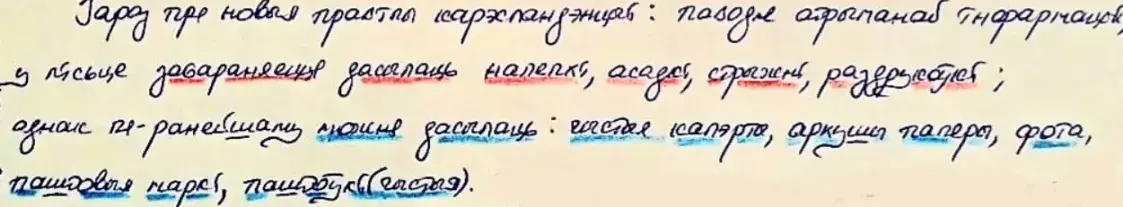 Зараз пра новыя правілы карэспандэнцыі: паводле атрыманай інфармацыі,
у лісьце забараняецца дасылаць налепкі, асадкі, стрыжні, раздрукоўкі;
аднак па-ранейшаму можна дасылаць: чыстая канвэрты, аркушы паперы, фота,
паштовыя маркі, паштоўкі (чыстыя).